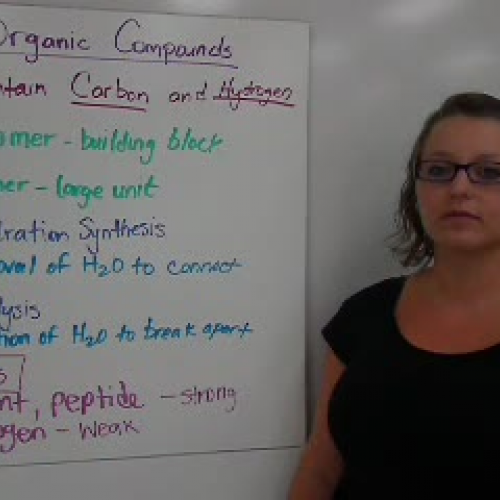 Organic Compounds
ntain Carbon and Hydrogen
omer - building block
er - large unit
ration Synthesis
oval of H2O to connect
lysis
tion of H2O to break apart
s
nt, peptide - strong
ogen - weak